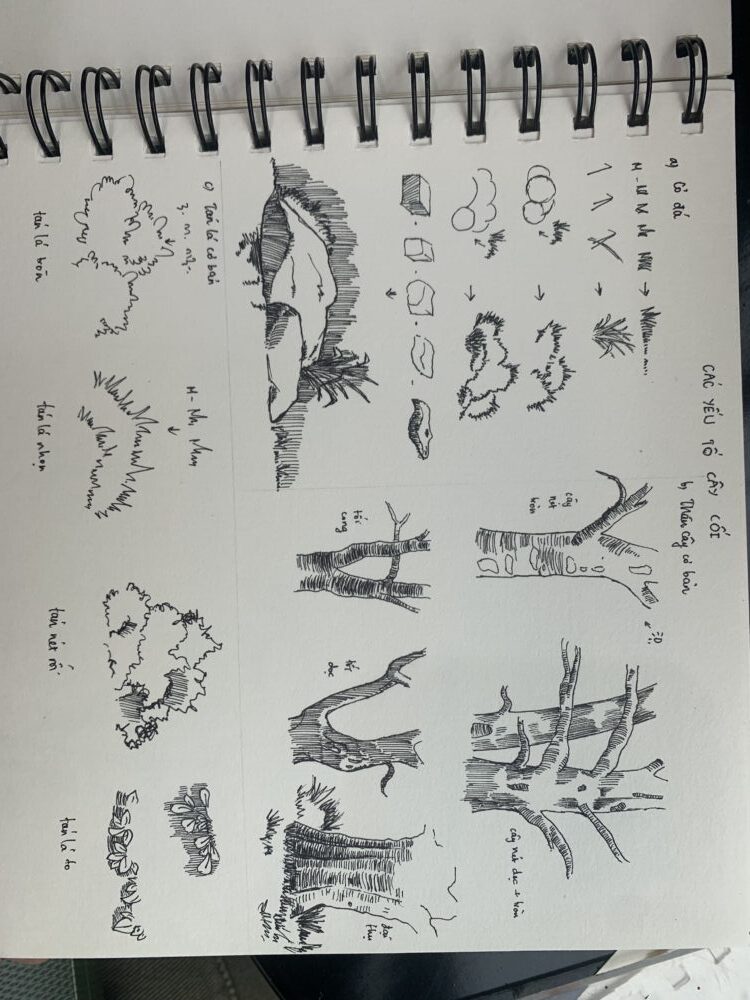 CÁC YẾU TỐ CÂY CỐI
a) Cỏ đá
b, Thân cây cơ bản
:D
cây
nét
tròn
cây nét dọc + tròn
tối
cong
dọc
đại
thụ
c) Tán lá cơ bản
3. m. m3.
tán lá tròn
tán lá nhọn
tán nét rối
tán lá to